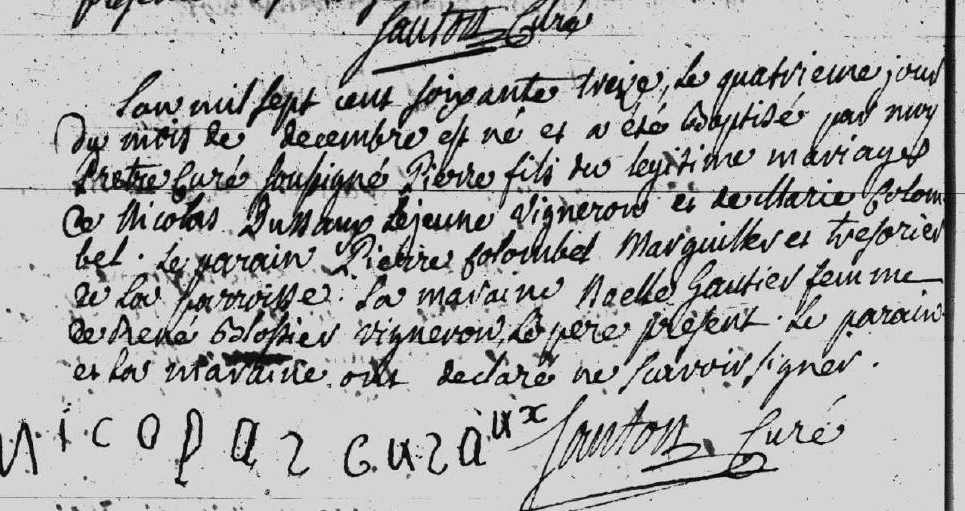 Santon Curé
Lan mil sept cent soixante treize, le quatrieme jour
Du mois de decembre est né et a été Baptisé par moy
Pretre Curé soussigné Pierre fils du legitime mariage
De Nicolas Dussaux Lejeune vigneron et de Marie Colom
bel. Le parain Pierre Colombel Marguiller et tresorier
de La parroisse. La maraine Noelle Gautier femme
de René vigneron, Le pere présent. Le parain
et La maraine ont declaré ne scavoir signer.
Santon Curé